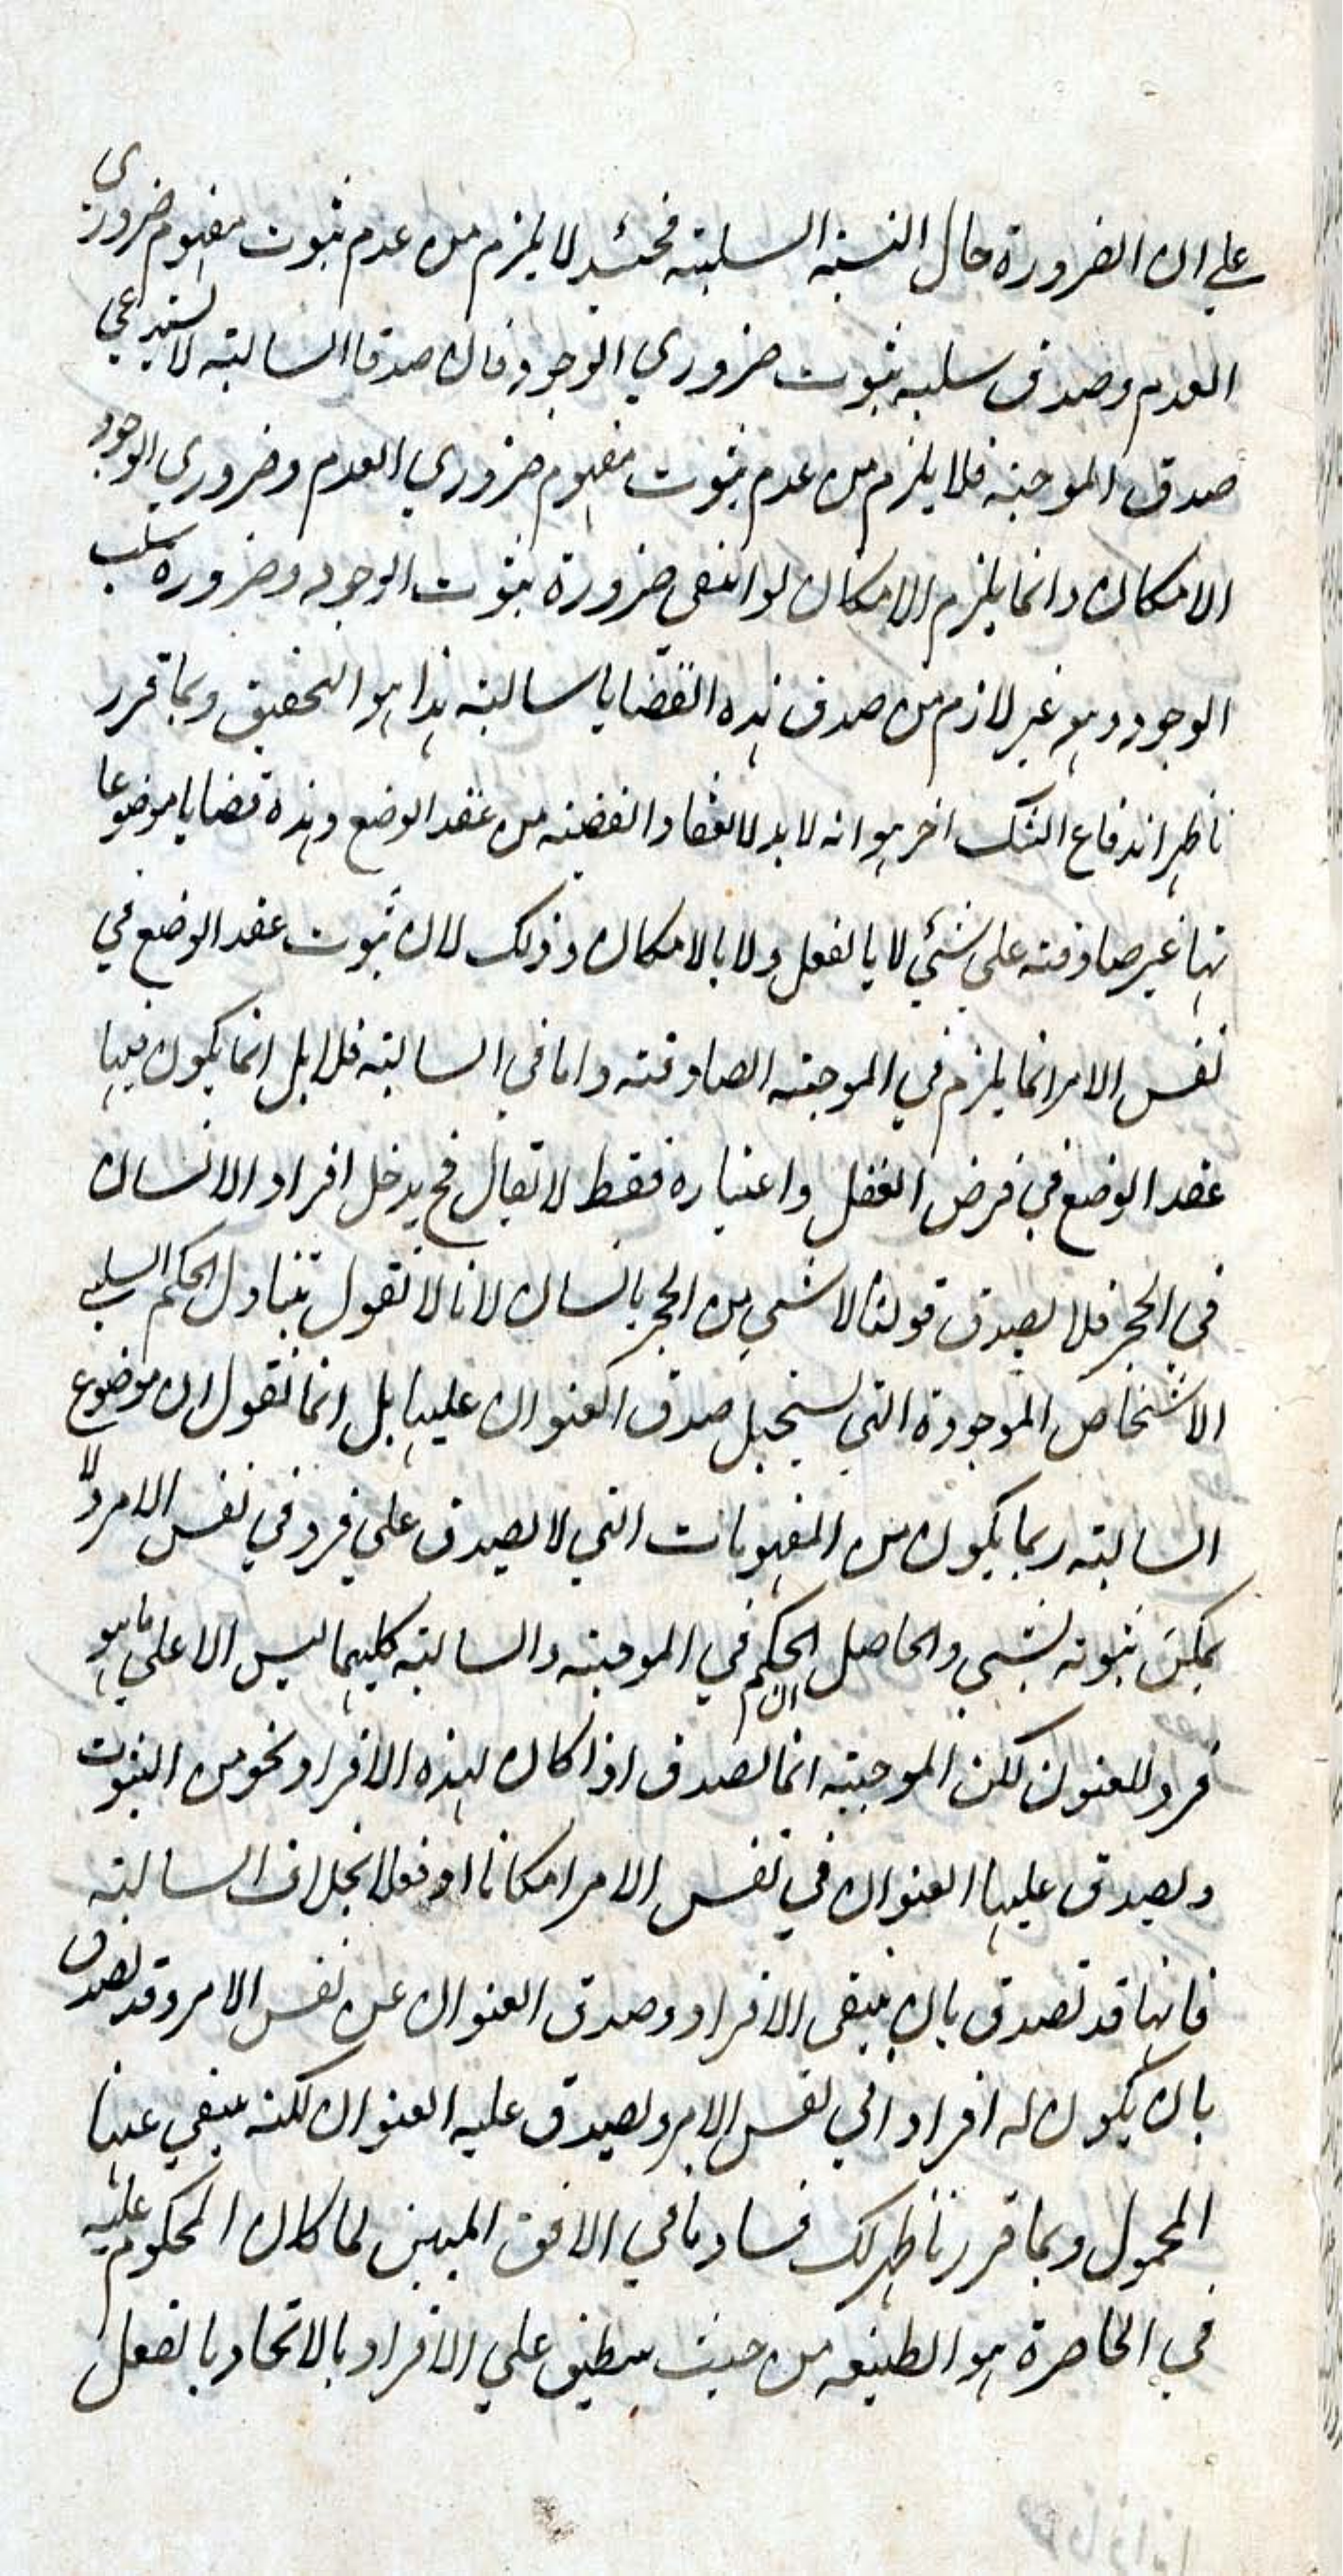 علي ان الضرورة حال النسبة السلبية فحينئذ لا يلزم من عدم ثبوت مفهوم ضروري
العدم وصدق سلبه ثبوت ضروري الوجود فان صدق السالبة لا يستدعي
صدق الموجبة فلا يلزم من عدم ثبوت مفهوم ضروري العدم وضروري الوجود
الامكان وانما يلزم الامكان لو انتفى ضرورة ثبوت الوجود وضرورة سلب
الوجود وهو غير لازم من صدق هذه القضايا سالبة هذا هو التحقيق وبما قرر
نا ظهر اندفاع الشك اخر هو انه لا بد لانعقاد القضية من عقد الوضع وهذه قضايا موضوعا
تها غير صادقة على شئي لا بالفعل ولا بالامكان وذلك لان ثبوت عقد الوضع في
نفس الامر انما يلزم في الموجبة الصادقة واما في السالبة فلا بل انما يكون فيها
عقد الوضع في فرض العقل واعتباره فقط لا يقال فح يدخل افراد الانسان
في الحجر فلا يصدق قولنا لا شي من الحجر بانسان لانا لا نقول بتناول الحكم السلبي
الاشخاص الموجودة التي يستحيل صدق العنوان عليها بل انما نقول ان موضوع
السالبة ربما يكون من المفهومات التي لا يصدق علي فرد في نفس الامر ولا
يمكن ثبوته لشي والحاصل ان الحكم في الموجبة والسالبة كليهما ليس الا علي ما هو
فرد للعنوان لكن الموجبة انما تصدق اذا كان لهذه الافراد نحو من الثبوت
ويصدق عليها العنوان في نفس الامر امكانا او فعلا بخلاف السالبة
فانها قد تصدق بان ينتفى الافراد وصدق العنوان عن نفس الامر وقد تصدق
بان يكون له افراد في نفس الامر ويصدق عليه العنوان لكنه ينتفي عنها
المحمول وبما قررنا ظهر لك فساد ما في الافق المبين لما كان المحكوم عليه
في الحاصرة هو الطبيعة من حيث ينطبق علي الافراد بالاتحاد بالفعل